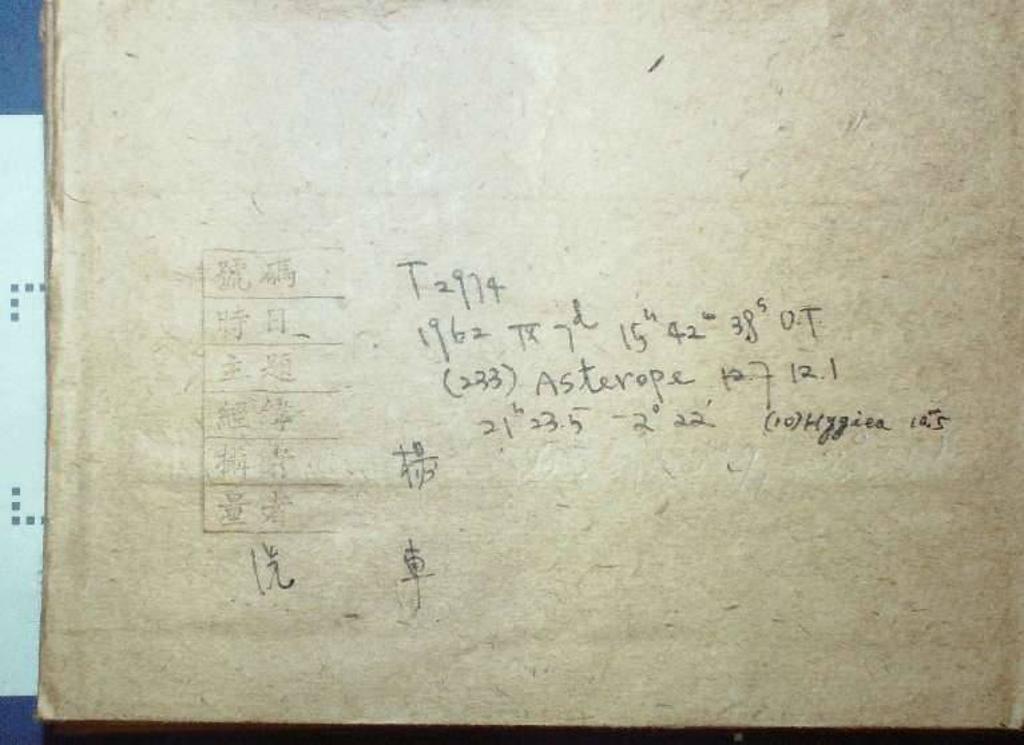 號碼 T 2974
時日 1962 IX 7d 15h 42m 38s U.T.
主題 (233) Asterope 12.7 12.1
經緯 21h 23.5 -2° 22' (10) Hygiea 10.5
攝者 楊
量者
洗 車